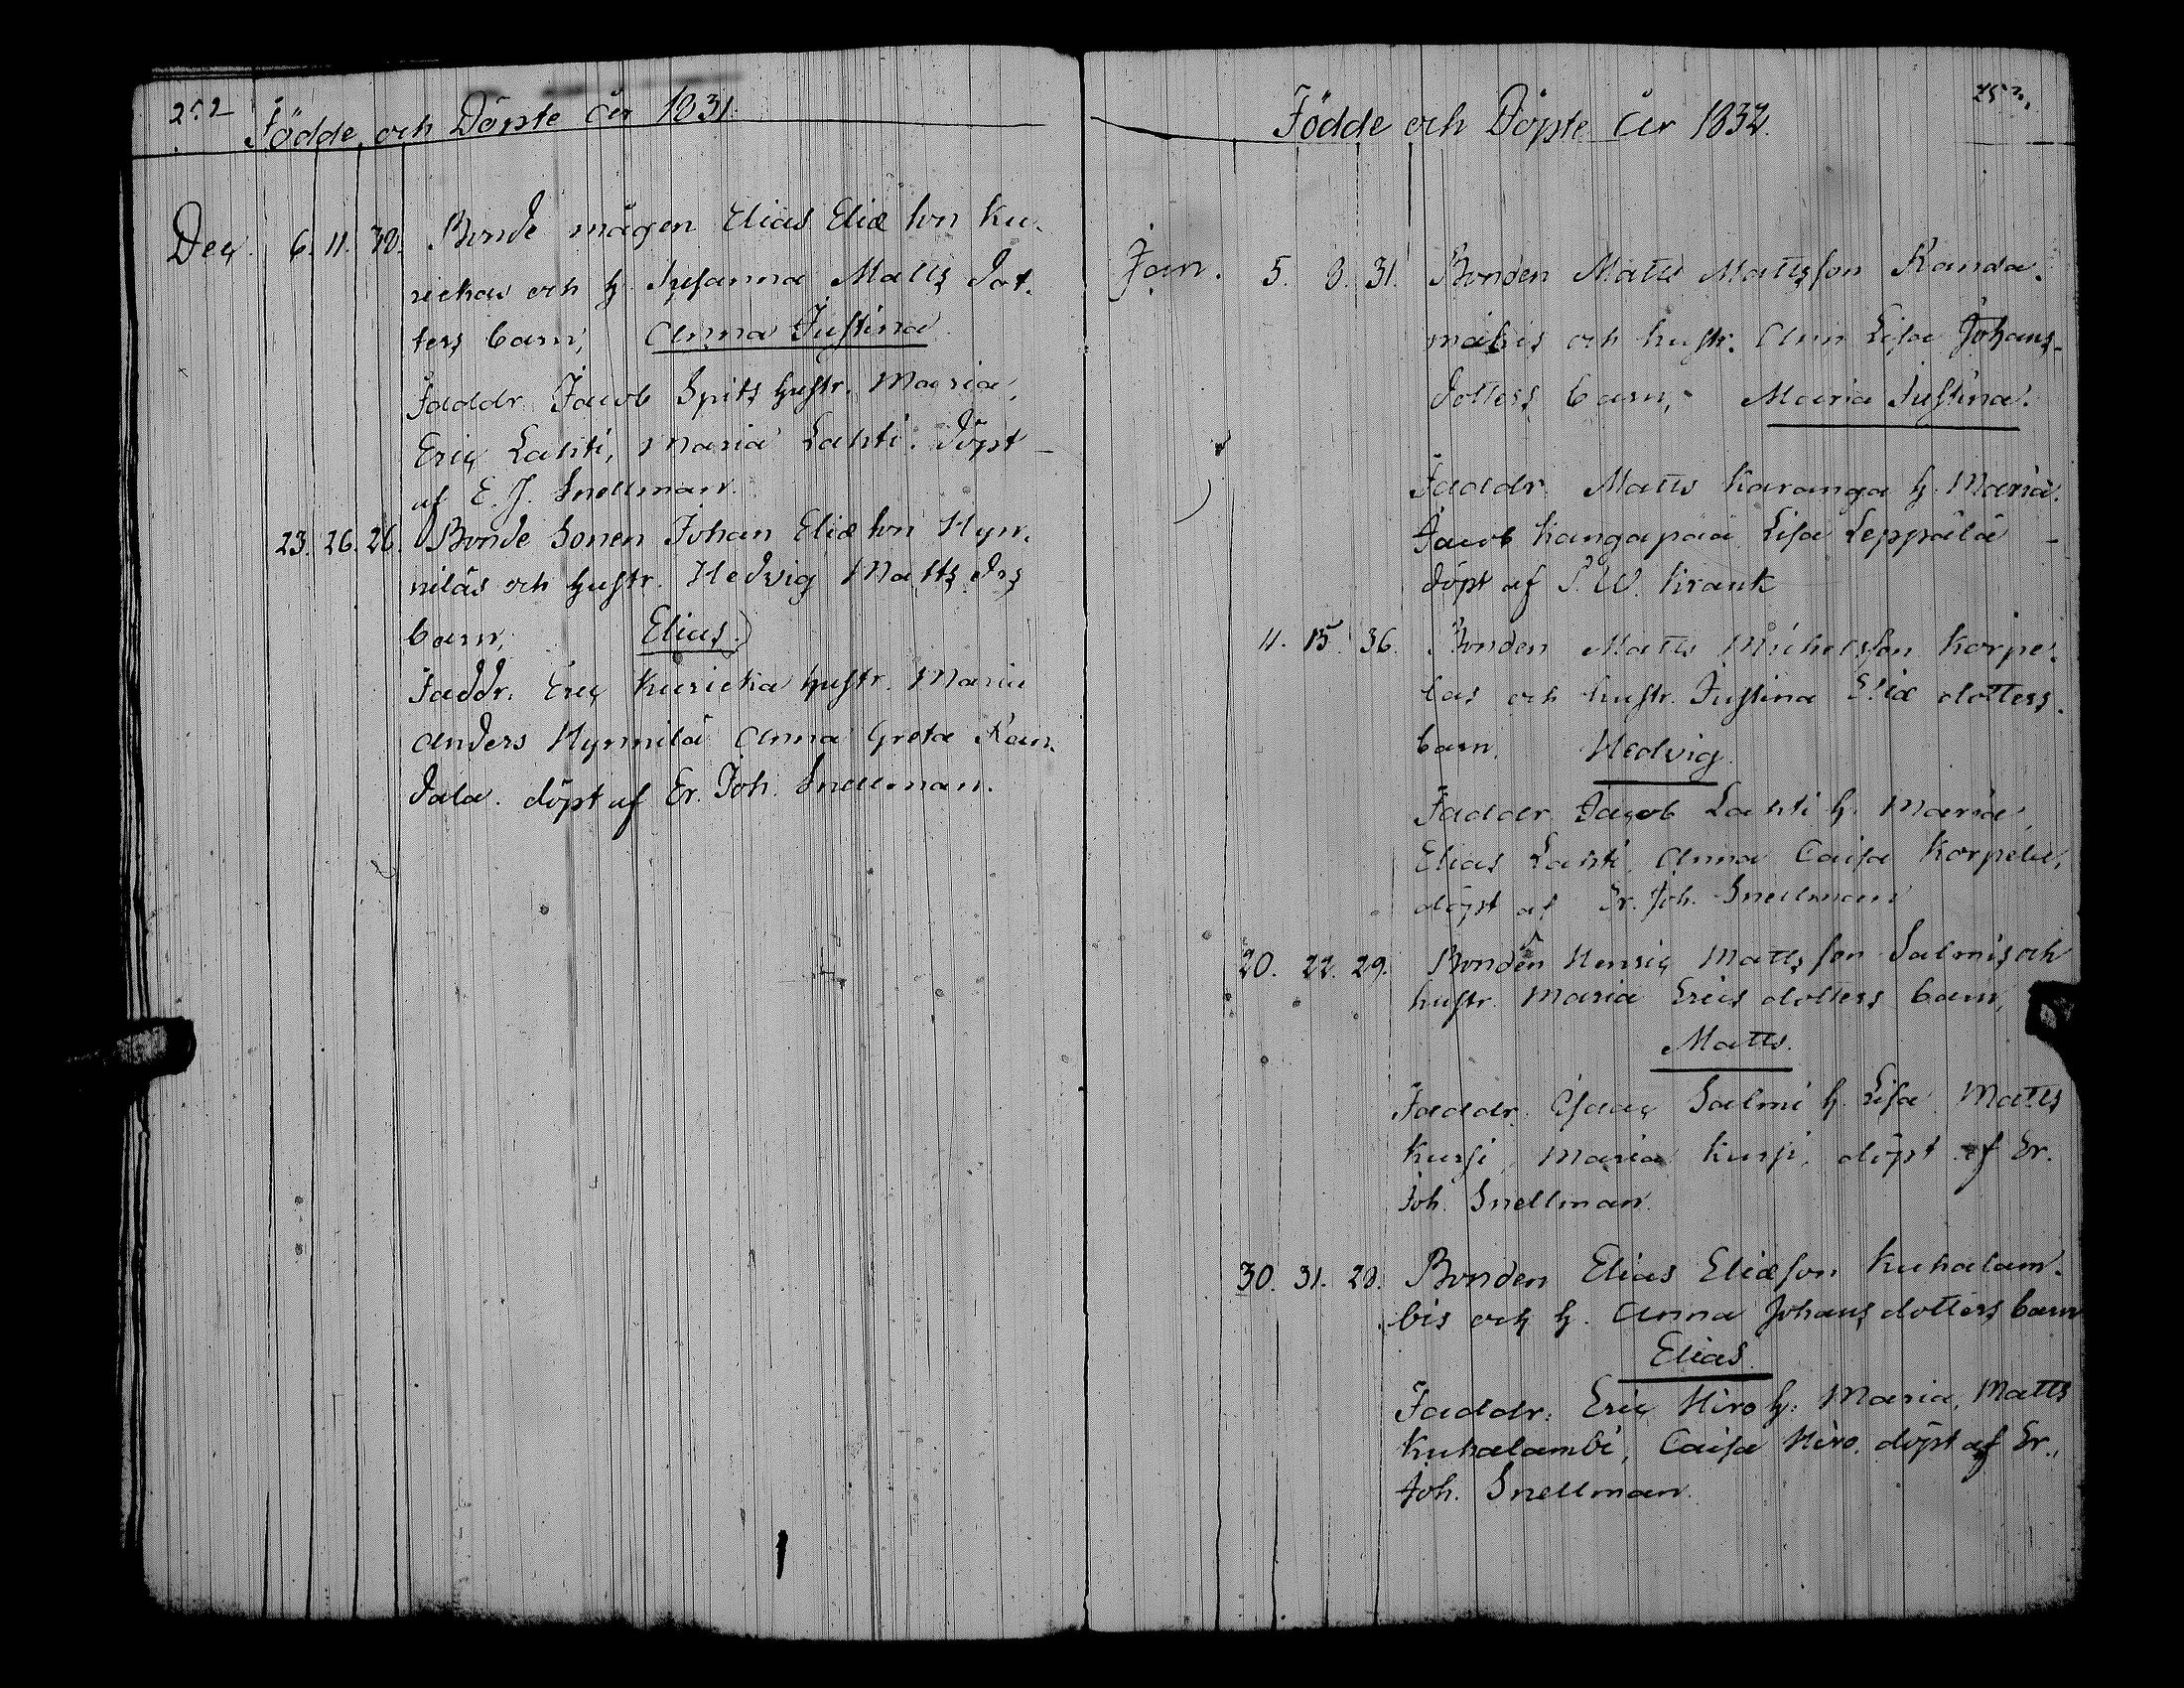 252
Födde och Döpte år 1831.
Dec. 6. 11. 30. Bonde mågen Elias Eliæ son Ku-
rickas och h. Susanna Matts dot-
ters barn, Anna Justina
Faddr. Jacob Spits hustr. Maria,
Eric Lahti, Maria Lahti. Döpt
af E. J. Snellman.
23. 26. 26. Bonde Sonen Johan Eliæ son Hyn-
niläs och hustr. Hedvig Matts drs
barn, Elias.
Faddr. Eric Kuricka hustr. Maria
Anders Hynnilä Anna Greta Ran-
dala. döpt af Er. Joh. Snellman.
Födde och Döpte år 1832.
253.
Jan. 5. 8. 31. Bonden Matts Mattsson Randa-
mäkis och hustr. Ann Lisa Johans-
dotters barn, Maria Justina.
Faddr. Matts Karanga h. Maria.
Jacob Kangapää Lisa Leppälä
döpt af S. W. Krank
11. 15. 36. Bonden Matts Michelsson Korpe-
las och hustr. Justina Eliæ dotters
barn. Hedvig.
Faddr Jacob Lahti h. Maria,
Elias Lahti, Anna Caisa Korpela,
döpt af Er. Joh. Snellman
20. 22. 29. Bonden Henric Matts son Salmis och
hustr. Maria Erics dotters barn,
Matts.
Faddr. Isaac Salmi h. Lisa Matts
Kursi, Maria Kursi, döpt af Er.
Joh. Snellman.
30. 31. 28. Bonden Elias Eliæson Kuhalam-
bis och h. Anna Johans dotters barn
Elias.
Faddr: Eric Hiro h: Maria, Matts
Kuhalambi, Caisa Hiro. döpt af Er.,
Joh. Snellman.